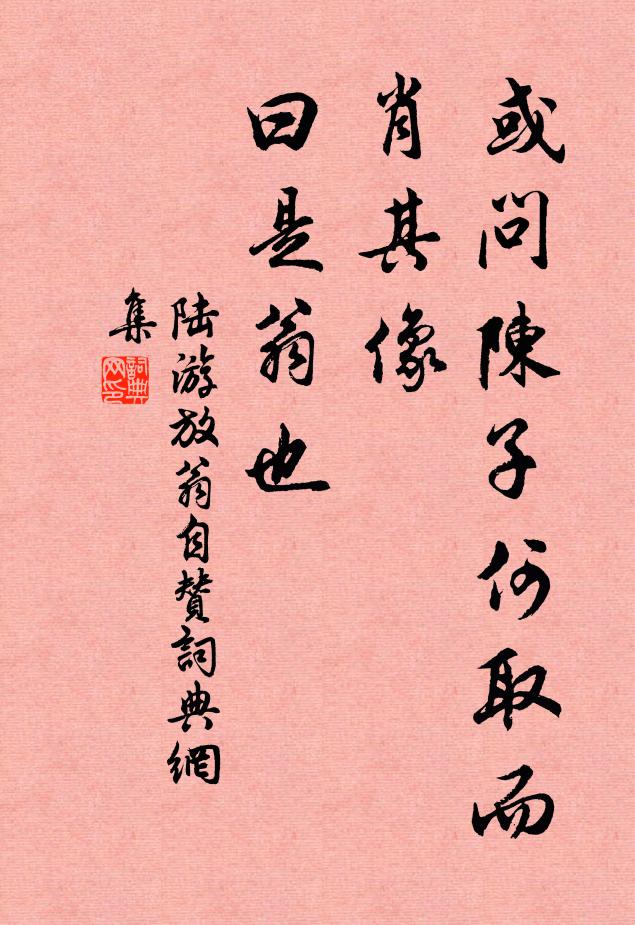 或問陳子何取而
肖其像
曰是翁也
陆游放翁自賛詞典網
集
詞典
网印